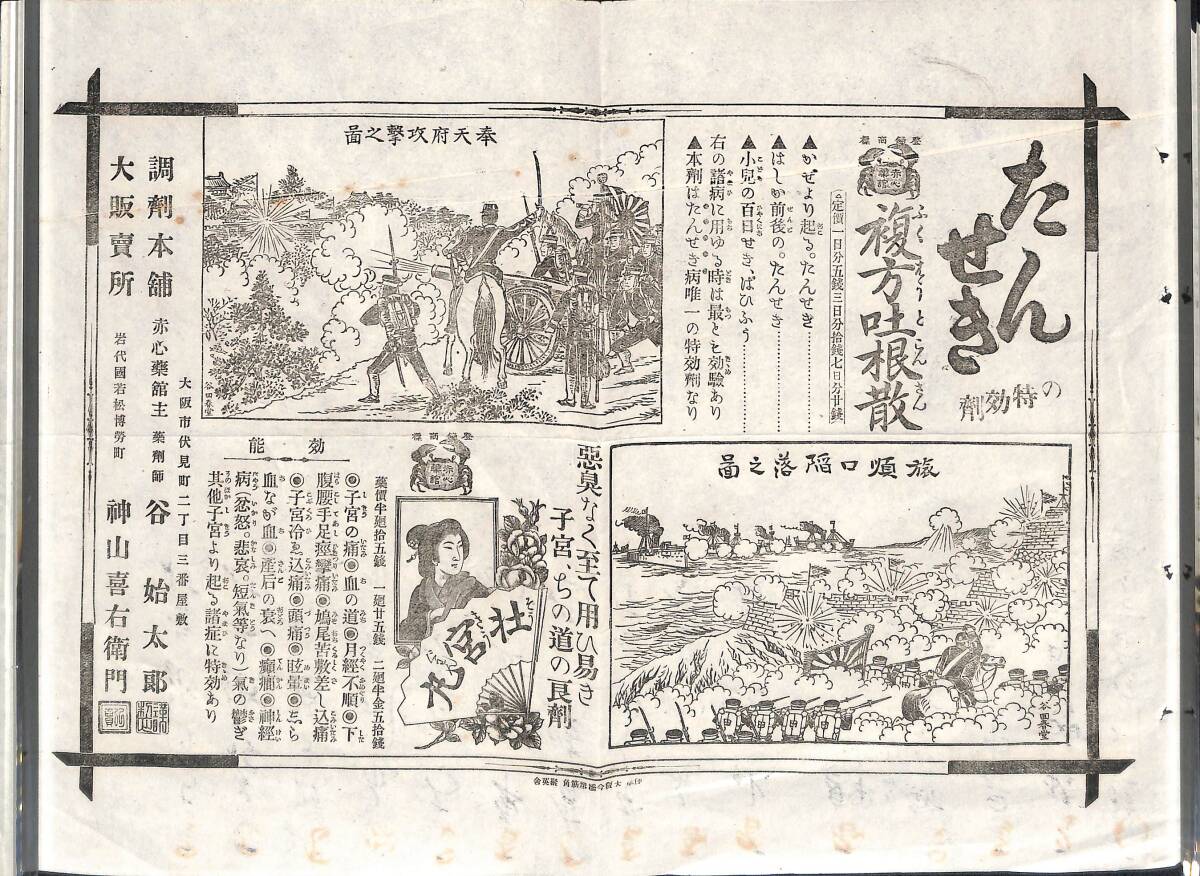 たん
せき
の特効劑
登録商標
赤心藥館
複方吐根散
ふくはうとこんさん
定價一日分五錢三日分拾錢七日分廿錢
▲かぜより起る。たんせき
▲はしか前後の。たんせき
▲小兒の百日せき、ぱひふう
右の諸病に用ゆる時は最とも効驗あり
▲本劑はたんせき病唯一の特効劑なり
奉天府攻擊之圖
谷田春堂
旅順口陥落之圖
谷田春堂
惡臭なく至て用ひ易き
子宮、ちの道の良劑
登録商標
赤心藥館
壮宮丸
藥價半廻拾五錢 一廻廿五錢 二廻半金五拾錢
効能
◉子宮の痛◉血の道◉月經不順◉下
腹腰手足痙攣痛◉鳩尾苦敷差し込痛
◉子宮冷ゑ込痛◉頭痛◉眩暈◉
血なが血◉產后の衰へ◉癪痛◉神經
病(忿怒。悲哀。短氣等なり)氣の鬱ぎ
其他子宮より起る諸症に特効あり
大阪市伏見町二丁目三番屋敷
調劑本舖 赤心藥館主 藥劑師 谷始太郎
大販賣所 岩代國若松博勞町 神山喜右衛門